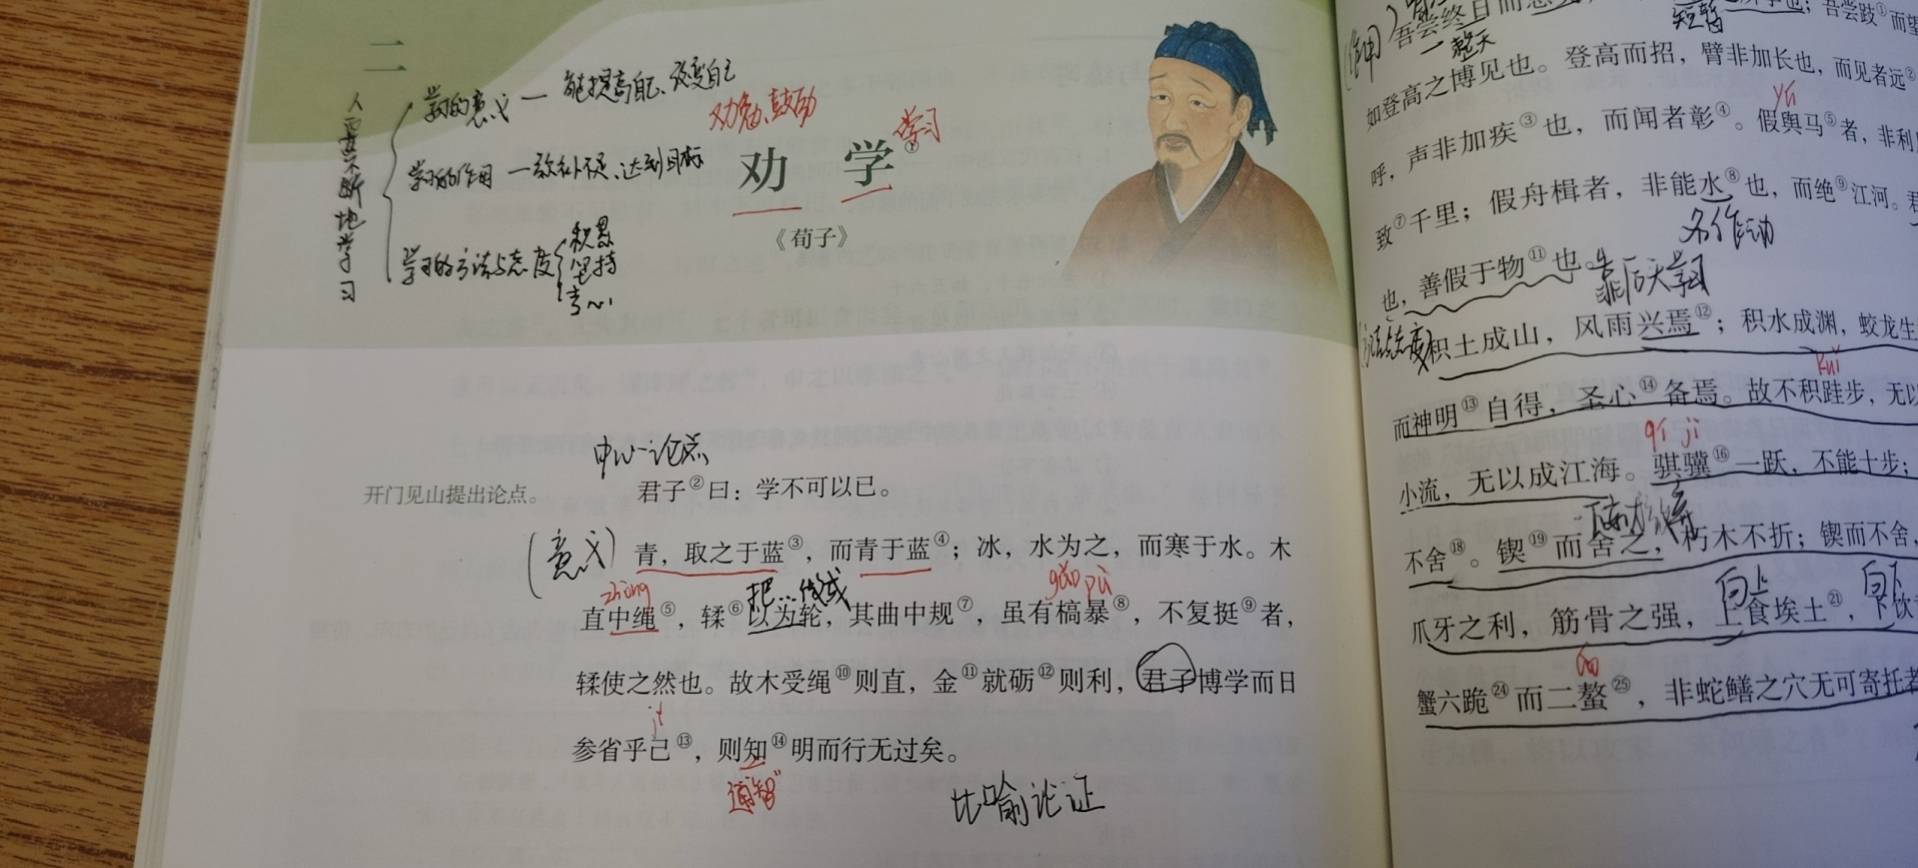 二
人要不断地学习
学习的意义 — 能提高自己、改变自己
学习的作用 — 弥补不足、达到目标
学习的方法与态度
积累
坚持
专心
劝勉、鼓励
学习
劝 学①
《荀子》
中心论点
开门见山提出论点。
君子②曰：学不可以已。
(意义)
青，取之于蓝③，而青于蓝④；冰，水为之，而寒于水。木
zhòng
把…做成
gǎo pù
直中绳⑤，𫐓⑥以为轮，其曲中规⑦，虽有槁暴⑧，不复挺⑨者，
𫐓使之然也。故木受绳⑩则直，金⑪就砺⑫则利，君子博学而日
jǐ
参省乎己⑬，则知⑭明而行无过矣。
通“智”
比喻论证
(作用)
吾尝终日而思
一整天
短暂
也；吾尝跂①而望
如登高之博见也。登高而招，臂非加长也，而见者远②
yú
呼，声非加疾③也，而闻者彰④。假舆马⑤者，非利
致⑦千里；假舟楫者，非能水⑧也，而绝⑨江河。君
名作动
也，善假于物⑪也。
靠后天学习
方法与态度
积土成山，风雨兴焉⑫；积水成渊，蛟龙生
kuǐ
而神明⑬自得，圣心⑭备焉。故不积跬步，无以
qí jì
小流，无以成江海。骐骥⑯一跃，不能十步；
不舍⑱。锲⑲而舍之，朽木不折；锲而不舍，
向上
向下
爪牙之利，筋骨之强，上食埃土㉑，下饮
áo
蟹六跪㉔而二螯㉕，非蛇鳝之穴无可寄托者